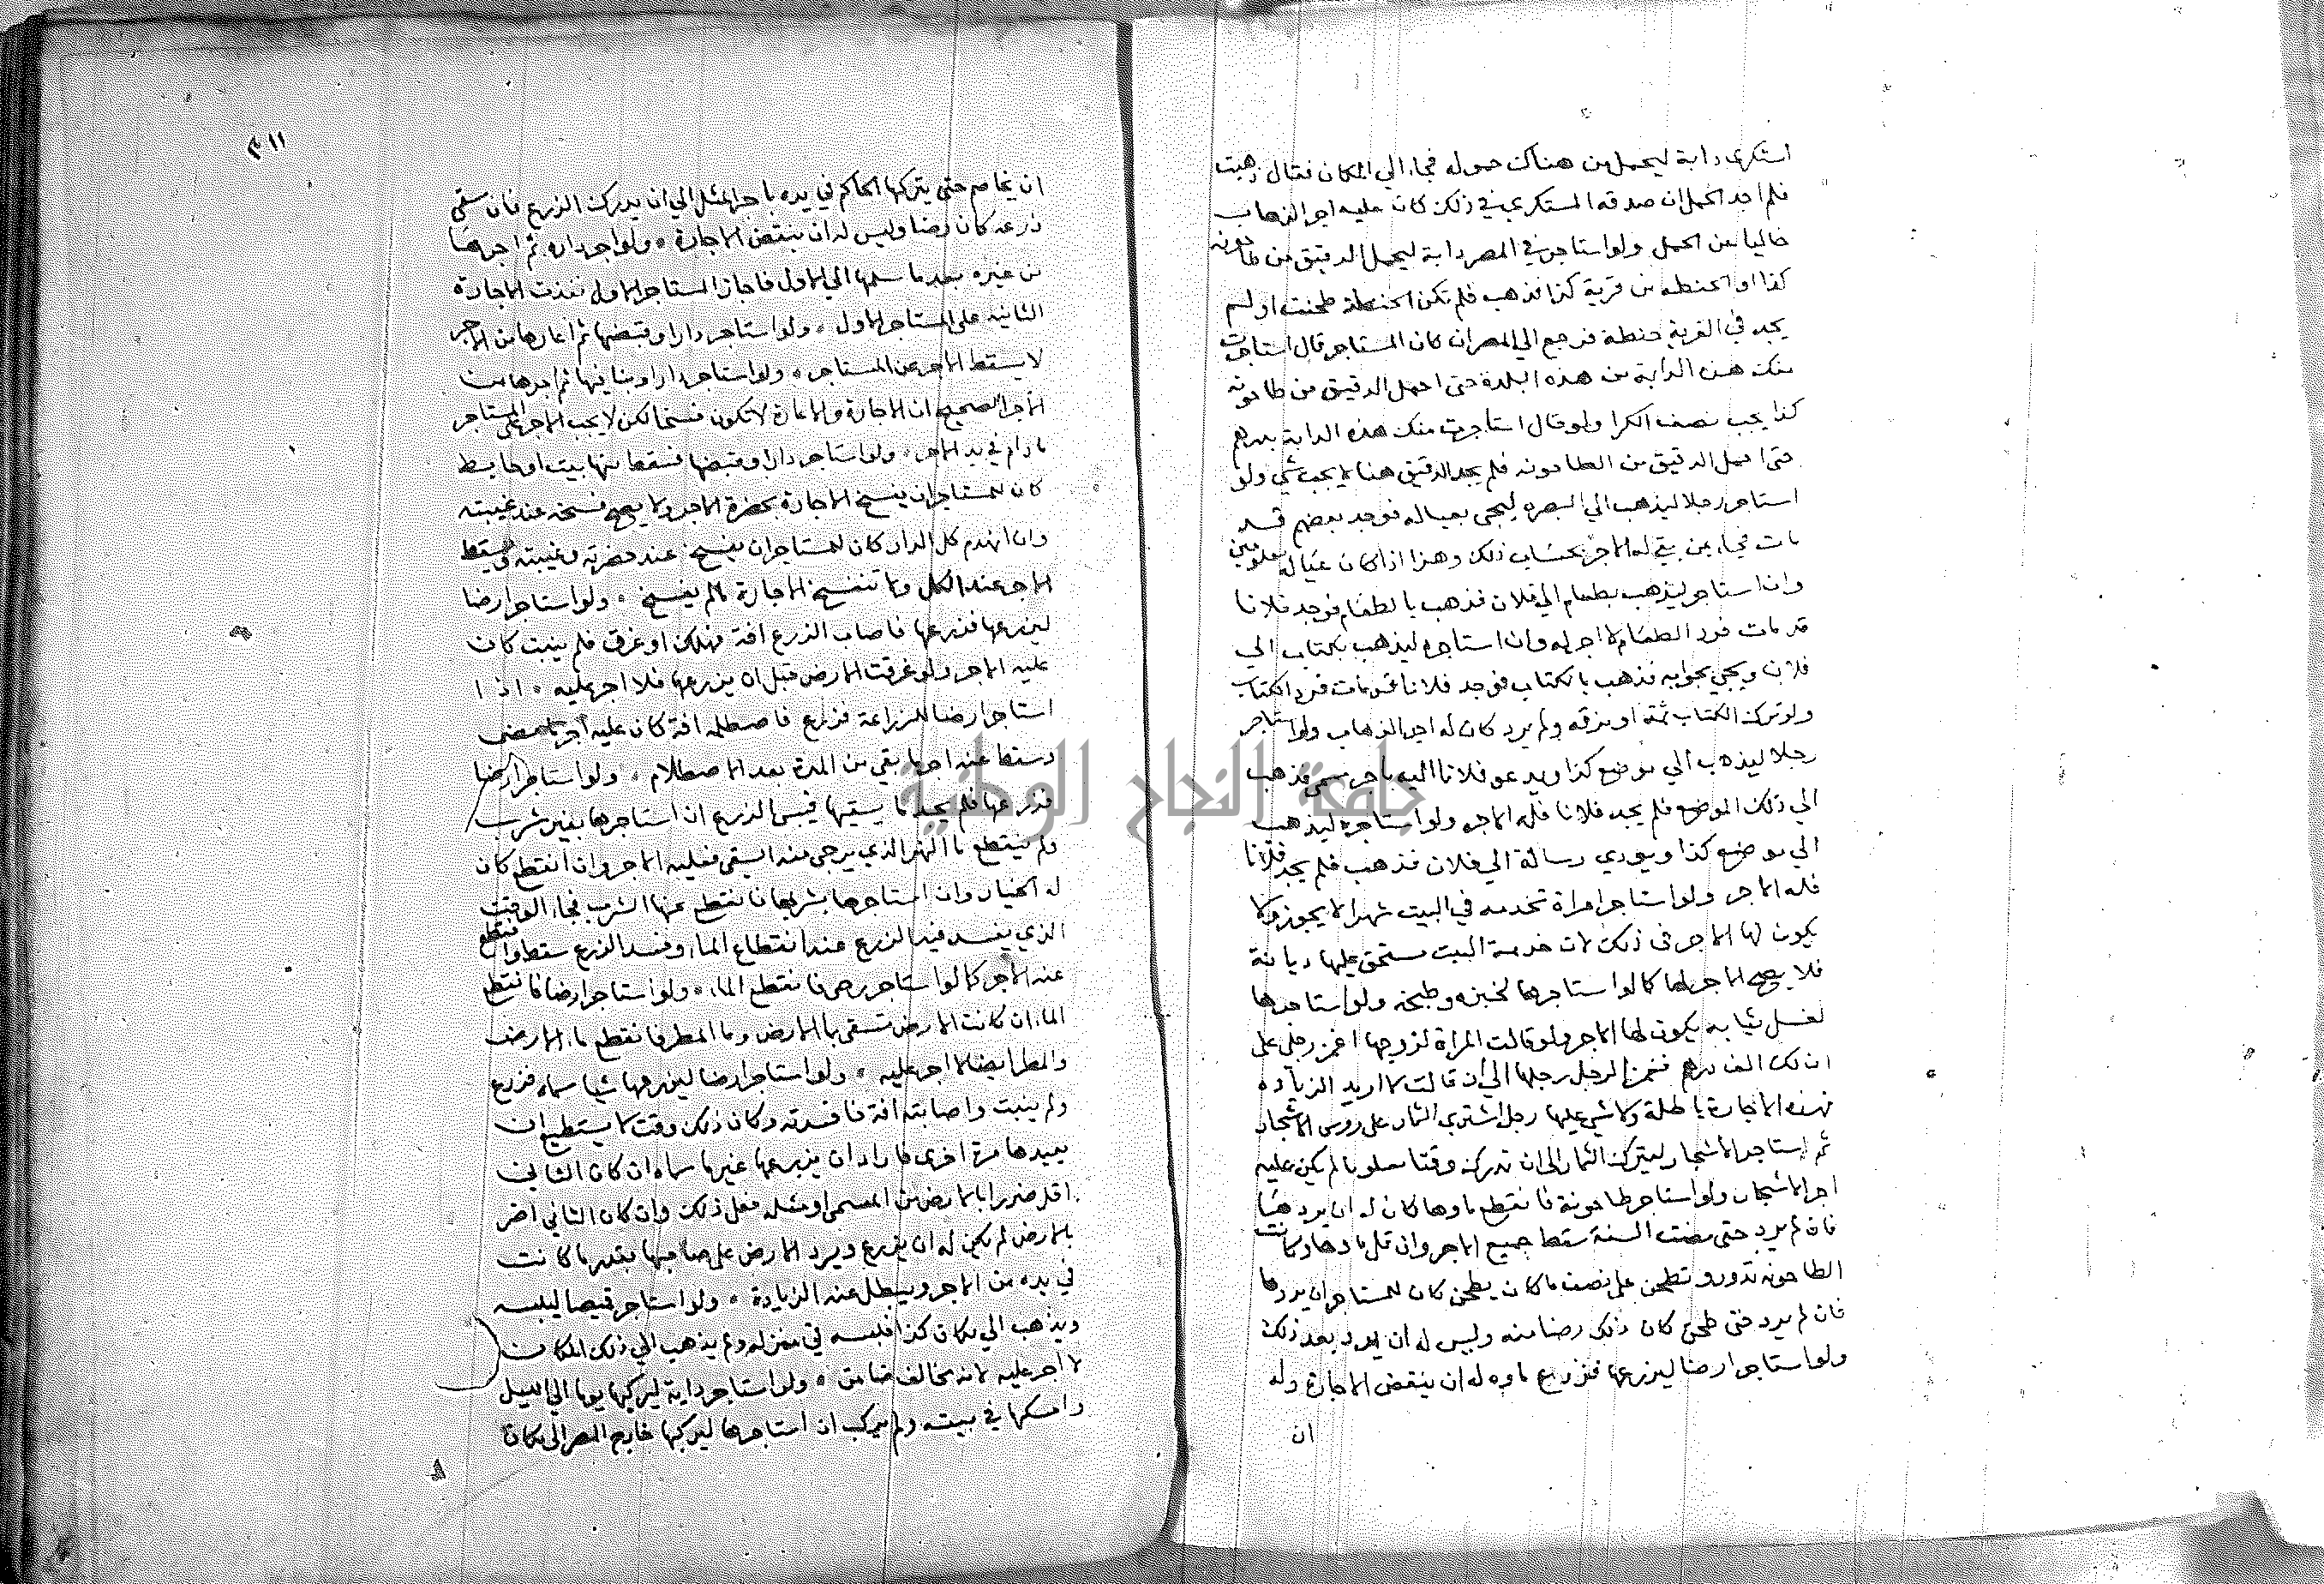 استكرى دابة ليحمل من هناك حموله فجاء الي المكان فقال ذهبت
فلم اجد الحمل ان صدقه المستكري في ذلك كان عليه اجر الذهاب
خاليا من الحمل ولو استاجر في المصر دابة ليحمل الدقيق من طاحونه
كذا او الحنطه من قرية كذا فذهب فلم تكن الحنطة طحنت او لم
يجد في القرية حنطة فرجع الي المصر ان كان المستاجر قال استاجرت
منك هذه الدابة من هذه البلدة حتى احمل الدقيق من طاحونه
كذا يجب نصف الكرا ولو قال استاجرت منك هذه الدابة بدرهم
حتى احمل الدقيق من الطاحونه فلم يجد الدقيق هنا لا يجب شي ولو
استاجر رجلا ليذهب الي البصره ليجى بعياله فوجد بعضهم قد
مات فجاء بمن بقي له الاجر بحساب ذلك وهذا اذا كان عياله معلومين
وان استاجر ليذهب بطعام الي فلان فذهب بالطعام فوجد فلانا
قد مات فرد الطعام لا اجر له وان استاجره ليذهب بكتاب الي
فلان ويجي بجوابه فذهب بالكتاب فوجد فلانا قد مات فرد الكتاب
ولو ترك الكتاب ثمة او مزقه ولم يرد كان له اجر الذهاب ولو استاجر
رجلا ليذهب الي موضع كذا ويدعو فلانا اليه باجر مسمى فذهب
الي ذلك الموضع فلم يجد فلانا فله الاجر ولو استاجره ليذهب
الي موضع كذا ويودي رسالة الي فلان فذهب فلم يجد فلانا
فله الاجر ولو استاجر امراة تخدمه في البيت شهرا لا يجوز ولا
يكون لها الاجر في ذلك لان خدمة البيت مستحق عليها ديانة
فلا يصح الاجر لها كما لو استاجرها لخبزه وطبخه ولو استاجرها
لغسل ثيابه يكون لها الاجر ولو قالت المراة لزوجها اغمز رجلي على
ان لك الف درهم فغمز الرجل رجلها الي ان قالت لا اريد الزيادة
فهذه الاجارة باطلة ولا شي عليها رجل اشترى الثمار على روس الاشجار
ثم استاجر الاشجار ليترك الثمار الى ان تدرك وقتا معلوما لم يكن عليه
اجر الاشجار ولو استاجر طاحونة فانقطع ماوها كان له ان يردها
فان لم يرد حتى مضت السنة سقط جميع الاجر وان قل ماوها وكانت
الطاحونه تدور وتطحن على نصف ما كان يطحن كان للمستاجر ان يردها
فان لم يرد حتى طحن كان ذلك رضا منه وليس له ان يرد بعد ذلك
ولو استاجر ارضا ليزرعها فنز ماوه له ان ينقض الاجارة وله
ان
٣١١
ان يخاصم حتى يتركها الحاكم في يده باجر المثل الي ان يدرك الزرع فان سقى
زرعه كان رضا وليس له ان ينقض الاجارة ولو اجر داره ثم اجرها
من غيره بعد ما سلمها الي الاول فاجاز المستاجر الاول نفذت الاجارة
الثانيه على المستاجر الاول ولو استاجر دارا وقبضها ثم اعارها من الاجر
لا يسقط الاجر عن المستاجر ولو استاجر دارا وبنا فيها ثم اجرها من
الآجر الصحيح ان الاجارة والاعارة لا تكون فسخا لكن لا يجب الاجر على المستاجر
ما دام في يد الاجر ولو استاجر دارا وقبضها فسقط منها بيت او حايط
كان للمستاجر ان يفسخ الاجارة بحضرة الاجر ولا يصح فسخه عند غيبته
وان انهدم كل الدار كان للمستاجر ان يفسخ عند حضرته وغيبته ويسقط
الاجر عند الكل ولا تنفسخ الاجارة مالم يفسخ ولو استاجر ارضا
ليزرعها فزرعها فاصاب الزرع افة فهلك او غرق فلم ينبت كان
عليه الاجر ولو غرقت الارض قبل ان يزرعها فلا اجر عليه اذا
استاجر ارضا للزراعة فزرع فاصطلمه افة كان عليه اجر ما مضى
وسقط عنه اجر ما بقي من المدة بعد الاصطلام ولو استاجر ارضا
فزرعها فلم يجد ما يسقيها فيبس الزرع ان استاجرها بغير شرب
ولم ينقطع ما النهر الذي يرجى منه السقي فعليه الاجر وان انقطع كان
له الخيار وان استاجرها بشربها فانقطع عنها الشرب فجاء الوقت
الذي يفسد فيه الزرع عند انقطاع الماء وفسد الزرع سقط
عنه الاجر كما لو استاجر رحى فانقطع الماء ولو استاجر ارضا فانقطع
الماء ان كانت الارض تسقى بما الارض وما المطر فانقطع ماء الارض
والمطر ايضا لا اجر عليه ولو استاجر ارضا ليزرعها شيا سماه فزرع
ولم ينبت واصابته افة فافسدته وكان ذلك وقت لا يستطيع ان
يعيدها مرة اخرى فاراد ان يزرعها غير ما سماه ان كان الثاني
اقل ضررا بالارض من المسمى او مثله فعل ذلك وان كان الثاني اضر
بالارض لم يكن له ان يزرع ويرد الارض على صاحبها بقدر ما كانت
في يده من الاجر ويبطل عنه الزيادة ولو استاجر قميصا ليلبسه
ويذهب الي مكان كذا فلبسه في منزله ولم يذهب الي ذلك المكان
لا اجر عليه لانه مخالف ضامن ولو استاجر دابة ليركبها يوما الي الليل
وامسكها في بيته ولم يركب ان استاجرها ليركبها خارج المصر الى مكان
جامعة النجاح الوطنية